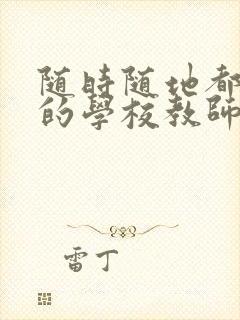 随時随地都
的學校教師
雷丁